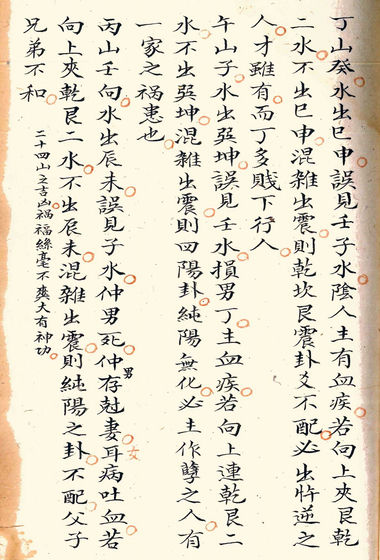 丁山癸水出巳申誤見壬子水陰人主有血疾若向上夾艮乾
二水不出巳申混雜出震則乾坎艮震卦爻不配必出忤逆之
人才雖有而丁多賤下行人
午山子水出巽坤誤見壬水損男丁主血疾若向上連乾艮二
水不出巽坤混雜出震則四陽卦純陽無化必主作孽之人有
一家之禍患也
丙山壬向水出辰未誤見子水仲男死仲男存尅妻女耳病吐血若
向上夾乾艮二水不出辰未混雜出震則純陽之卦不配父子
兄弟不和
二十四山之吉凶禍福絲毫不爽大有神功